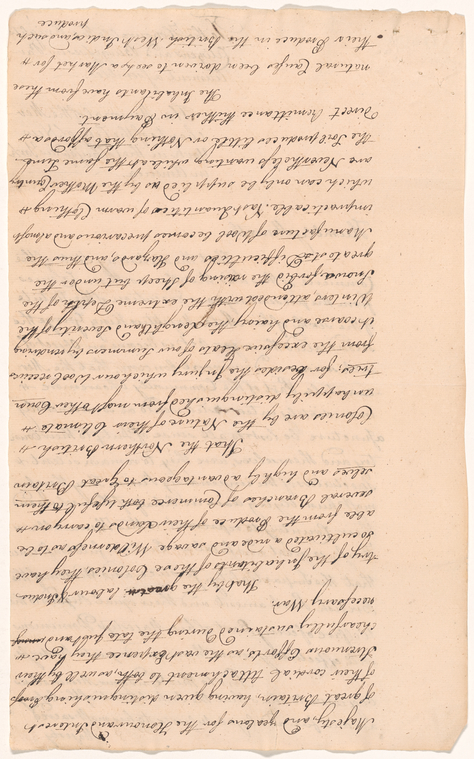 Majesty and zealous for the Honour and Interest
of Great Britain, having given distinguishing Proofs
of their cordial Attachment to both, as well by their
strenuous Efforts, as the vast Expence they have
chearfully sustained during the late just and
necessary War.
That by the great labour & Indus-
try of the Inhabitants of these Colonies they have
so cultivated a rude and savage Wilderness as to be
able from the Produce of their Lands to carry on
several Branches of Commerce both useful to them
selves and highly advantageous to Great Britain
That the Northern British
Colonies are by the Nature of their Climate
unhappily distinguished from most other Coun
tries; for besides the Injury which our Wool receives
from the excessive heats of our Summers by rendering
it coarse and hairy the Length and Severity of the
Winters attended with the extreme Depth of the
Snows forbid the raising of Sheep but under the
greatest Difficulties and Hazard and thus the
Manufacture of Wool becomes precarious and almost
impracticable. Vast Quantities of warm Clothing
which can only be supplied us by the Mother Country
are Nevertheless wanting while at the same time
the Soil produces little or Nothing that affords a
Direct Remittance thither in Payment.
The Inhabitants have from these
natural Causes been driven to seek a Market for
their Produce in the British West Indies, and such
produce